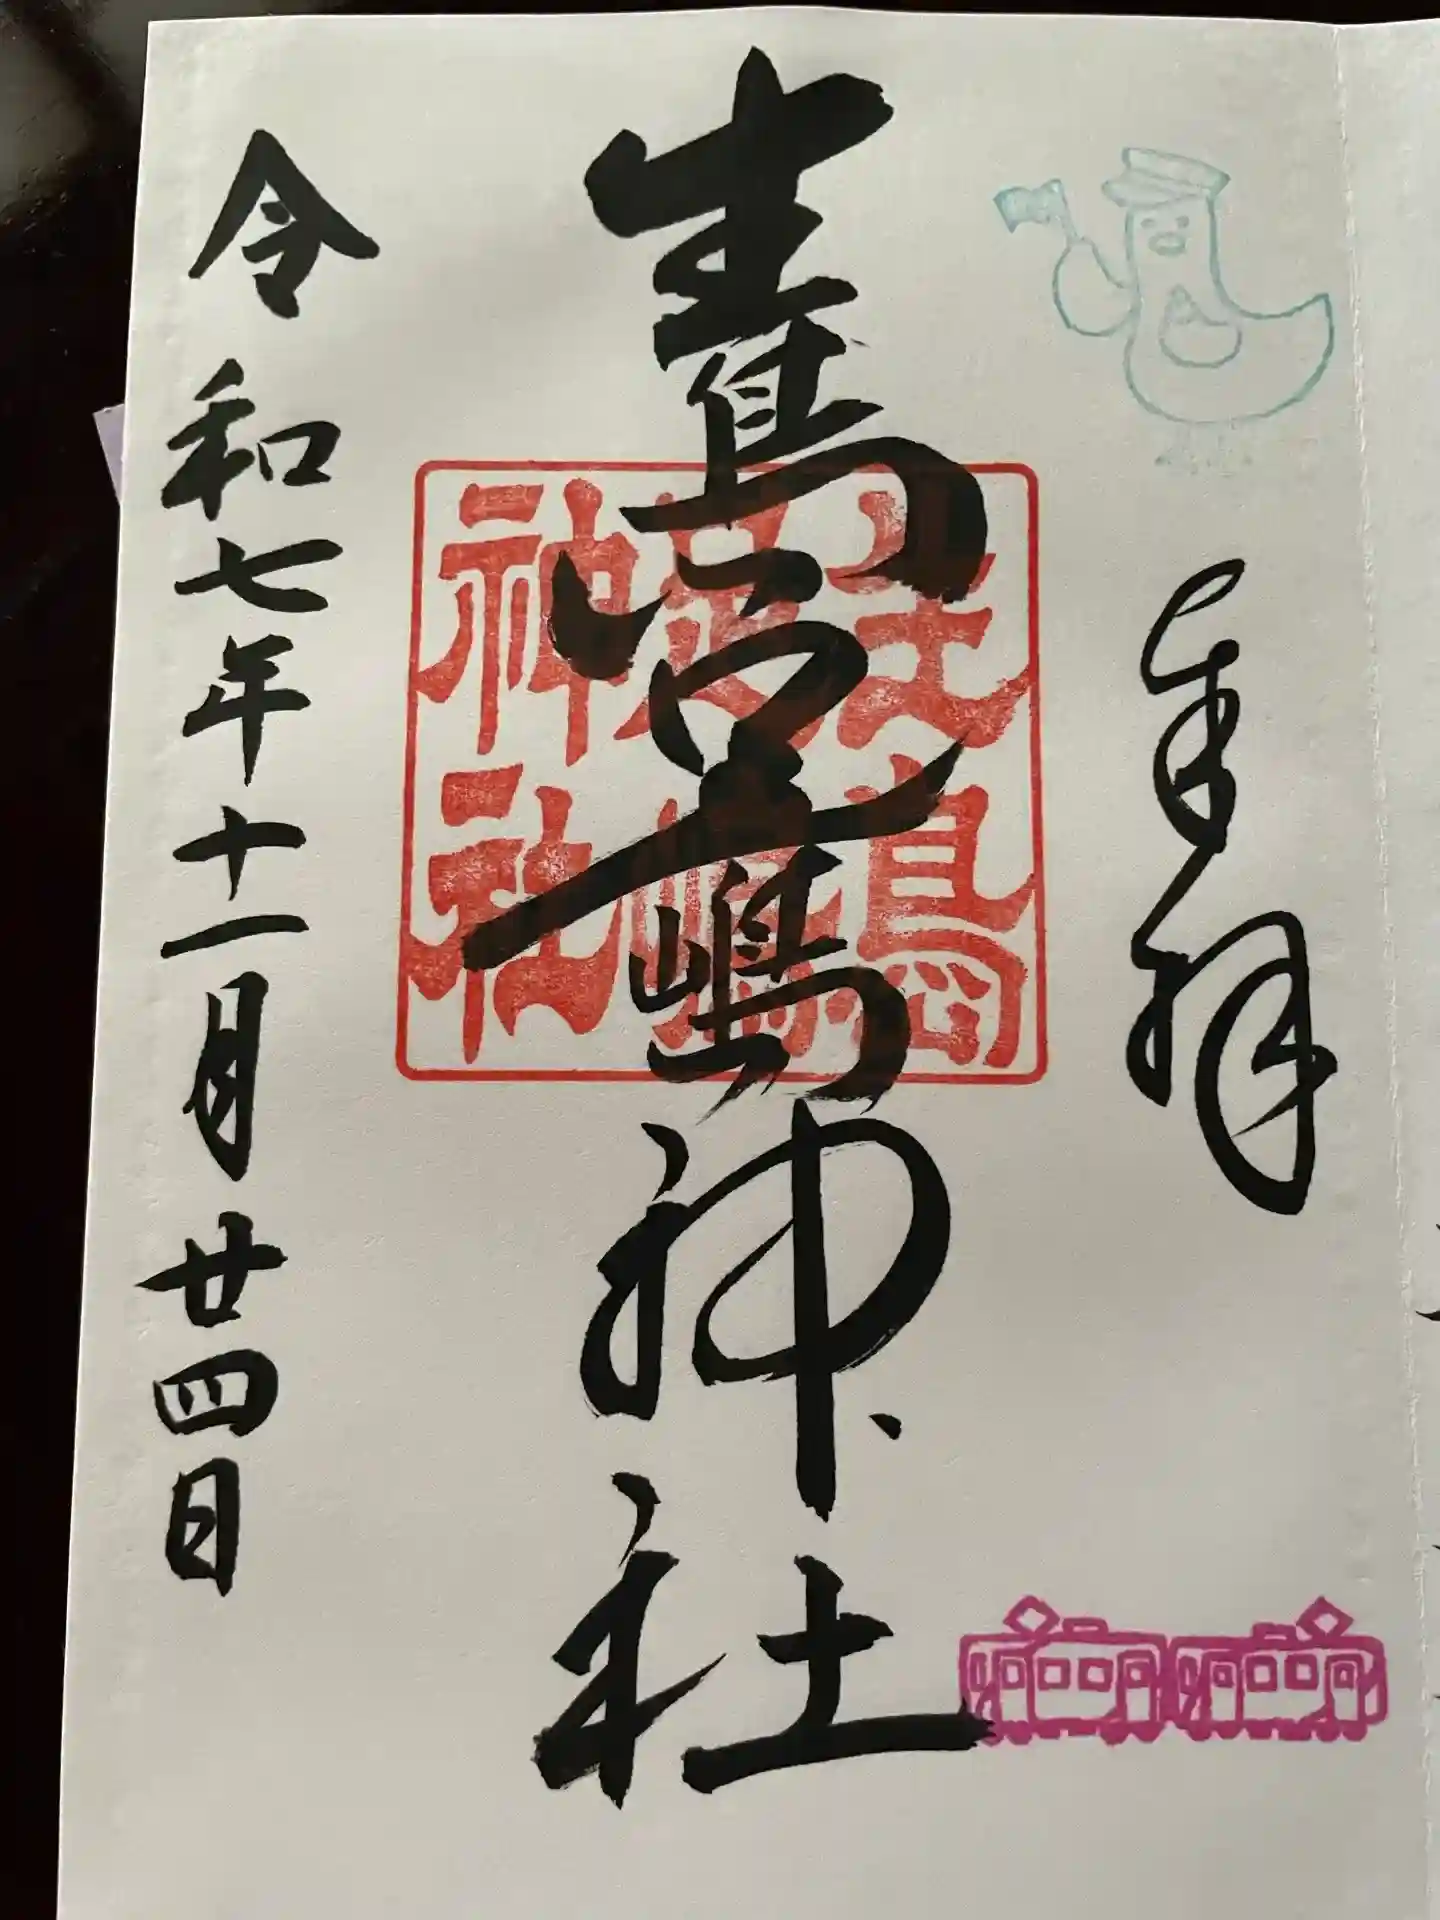 奉拝
生島足嶋神社
生島
足嶋
神社
令和七年十一月廿四日